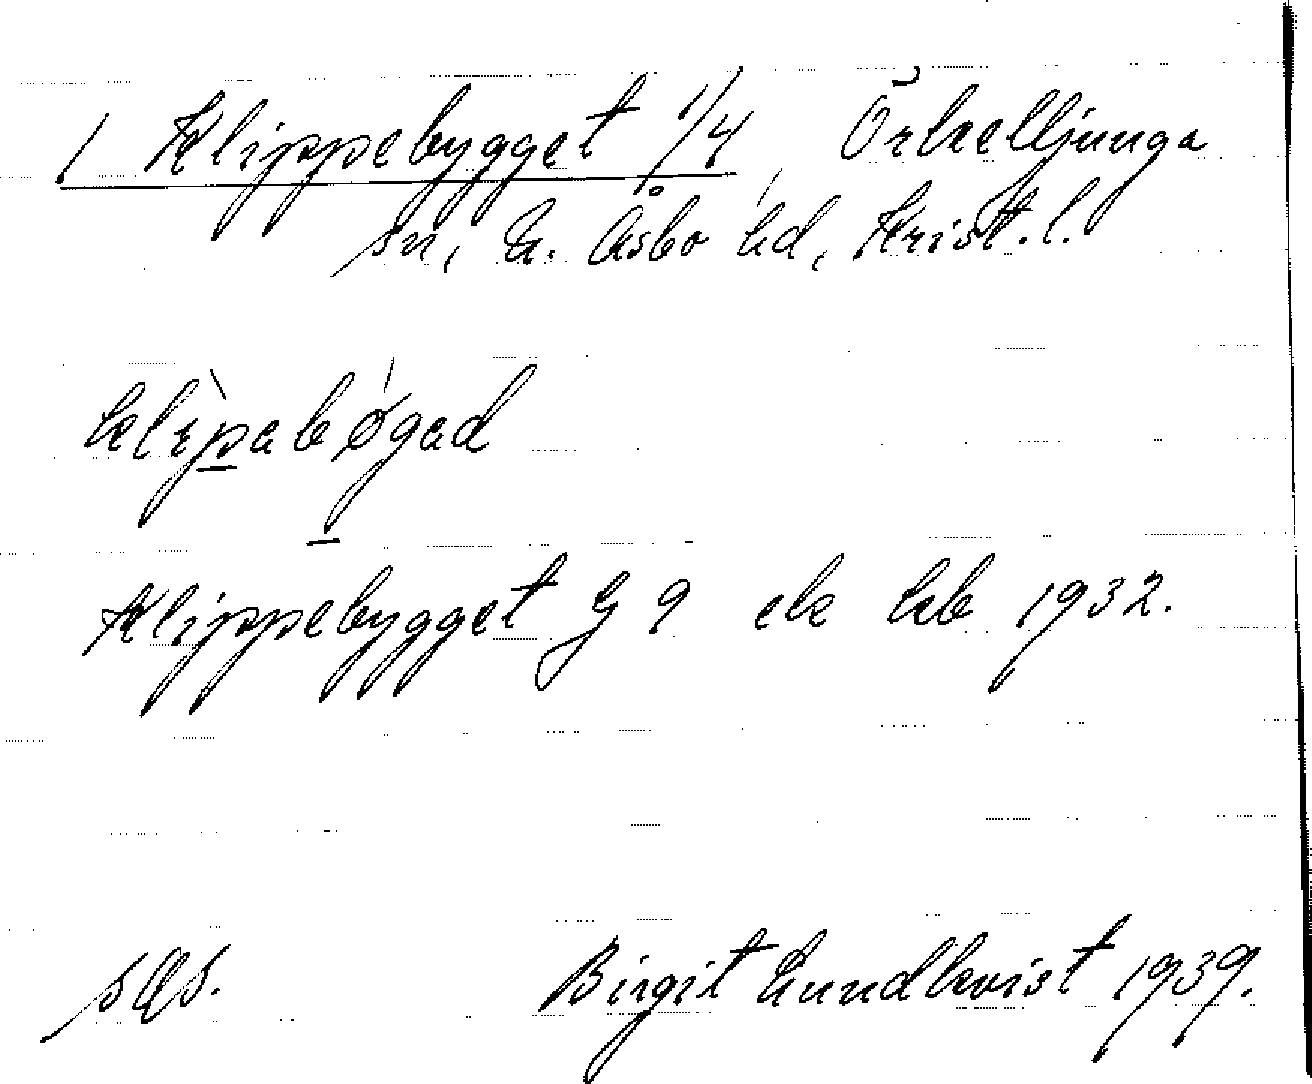 1 Klippebygget 1/4, Örkelljunga
sn, N. Åsbo hd, Krist. l.
klìpabǿgad
Klippebygget G 9 ek kb 1932.
sqs.
Birgit Lundkvist 1939.